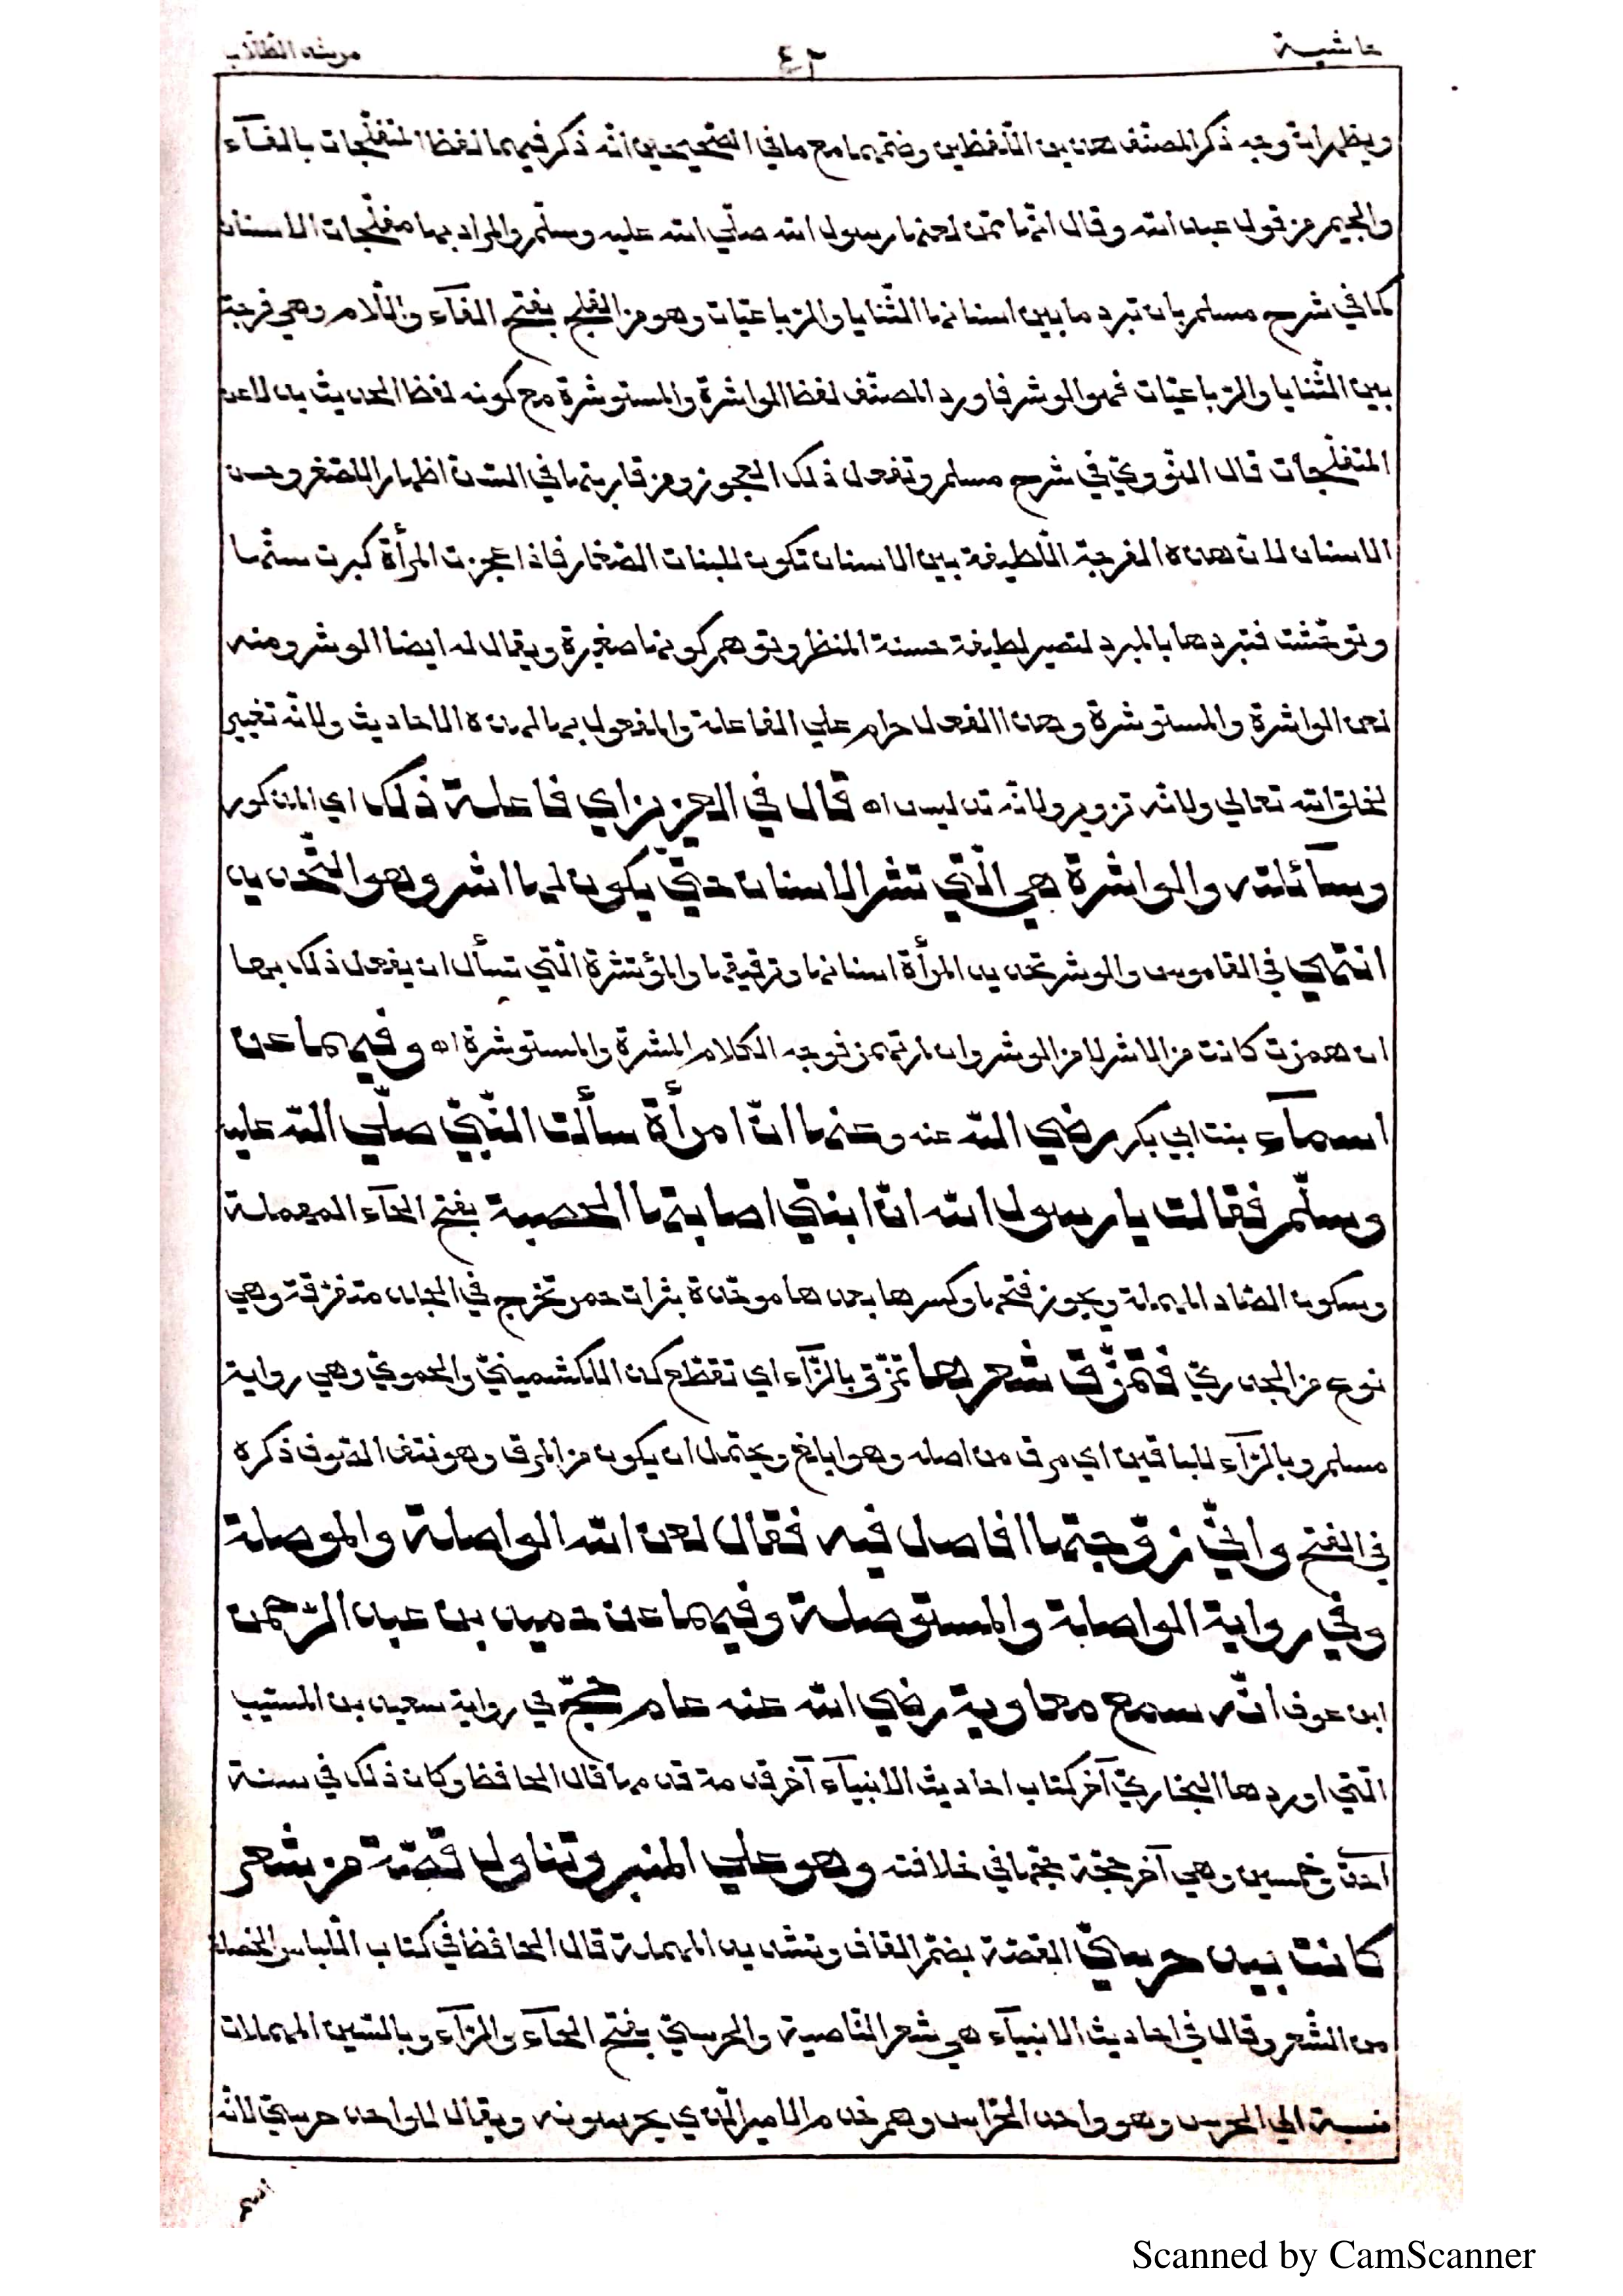 حاشية ٤٢ مرشد الطلاب
ويظهر ان وجه ذكر المصنف هذين اللفظين وضمهما مع ما في الصحيحين انه ذكر فيهما لفظ المتفلّجات بالفآء
والجيم من قول عبد الله وقال انها ممن لعنها رسول الله صلّي الله عليه وسلّم والمراد بها مفلّجات الاسنان
كما في شرح مسلم بان تبرد ما بين اسنانها الثّنايا والرّباعيّات وهو من الفلج بفتح الفآء واللّام وهي فرجة
بين الثّنايا والرّباعيّات فهو الوشر فاورد المصنّف لفظ الواشرة والمستوشرة مع كونه لفظ الحديث بدلا عن
المتفلّجات قال النّوويّ في شرح مسلم وتفعل ذلك العجوز ومن قاربتها في السّنّ اظهارا للصّغر وحسن
الاسنان لان هذه الفرجة اللّطيفة بين الاسنان تكون للبنات الصّغار فاذا عجزت المرأة كبرت سنّها
وتوحّشت فتبردها بالمبرد لتصير لطيفة حسنة المنظر وتوهم كونها صغيرة ويقال له ايضا الوشر ومنه
لعن الواشرة والمستوشرة وهذا الفعل حرام علي الفاعلة والمفعول بها لهذه الاحاديث ولانّه تغيير
لخلق الله تعالي ولانّه تزوير ولانّه تدليس اه قال في العزيزاي فاعلة ذلك اي المذكور
وسآئلته والواشرة هي الّتي تشر الاسنان حتّي يكون لها اشر وهو التّحديد
انتهي في القاموس والوشر تحديد المرأة اسنانها وترقيقها والمؤتشرة الّتي تسأل ان يفعل ذلك بها
ان همزت كانت من الاشر لا من الوشر وان لم تهمز فوجه الكلام المشرة والمستوشرة اه وفيهما عن
اسمآء بنت ابي بكر رضي الله عنه وعنها انّ امرأة سألت النّبيّ صلّي الله عليه
وسلّم فقالت يا رسول الله انّ ابنتي اصابتها الحصبة بفتح الحآء المهملة
وسكون الصّاد المهملة ويجوز فتحها وكسرها بعدها موحّدة بثرات حمر تخرج في الجلد متفرّقة وهي
نوع من الجدريّ فتمزّق شعرها تمزّق بالزّآء اي تقطّع كذا للكشميهنيّ والحمويّ وهي رواية
مسلم وبالرّآء للباقين اي مرق من اصله وهو ابلغ ويحتمل ان يكون من المرق وهو نتف الصّوف ذكره
في الفتح وانّي زوّجتها افاصل فيه فقال لعن الله الواصلة والموصلة
وفي رواية الواصلة والمستوصلة وفيهما عن حميد بن عبد الرّحمن
ابن عوف انّه سمع معاوية رضي الله عنه عام حجّ في رواية سعيد بن المسيّب
الّتي اوردها البخاريّ آخر كتاب احاديث الانبيآء آخر قدمة قدمها قال الحافظ وكان ذلك في سنة
احدي وخمسين وهي آخر حجّة حجّها في خلافته وهو علي المنبر وتناول قصّة من شعر
كانت بيد حرسيّ القصّة بضمّ القاف وتشديد المهملة قال الحافظ في كتاب اللّباس الخصلة
من الشّعر وقال في احاديث الانبيآء هي شعر النّاصية والحرسيّ بفتح الحآء والرّآء وبالسّين المهملات
نسبة الي الحرس وهو واحد الحرّاس وهم خدم الامير الّذي يحرسونه ويقال للواحد حرسيّ لانّه
اسم
Scanned by CamScanner